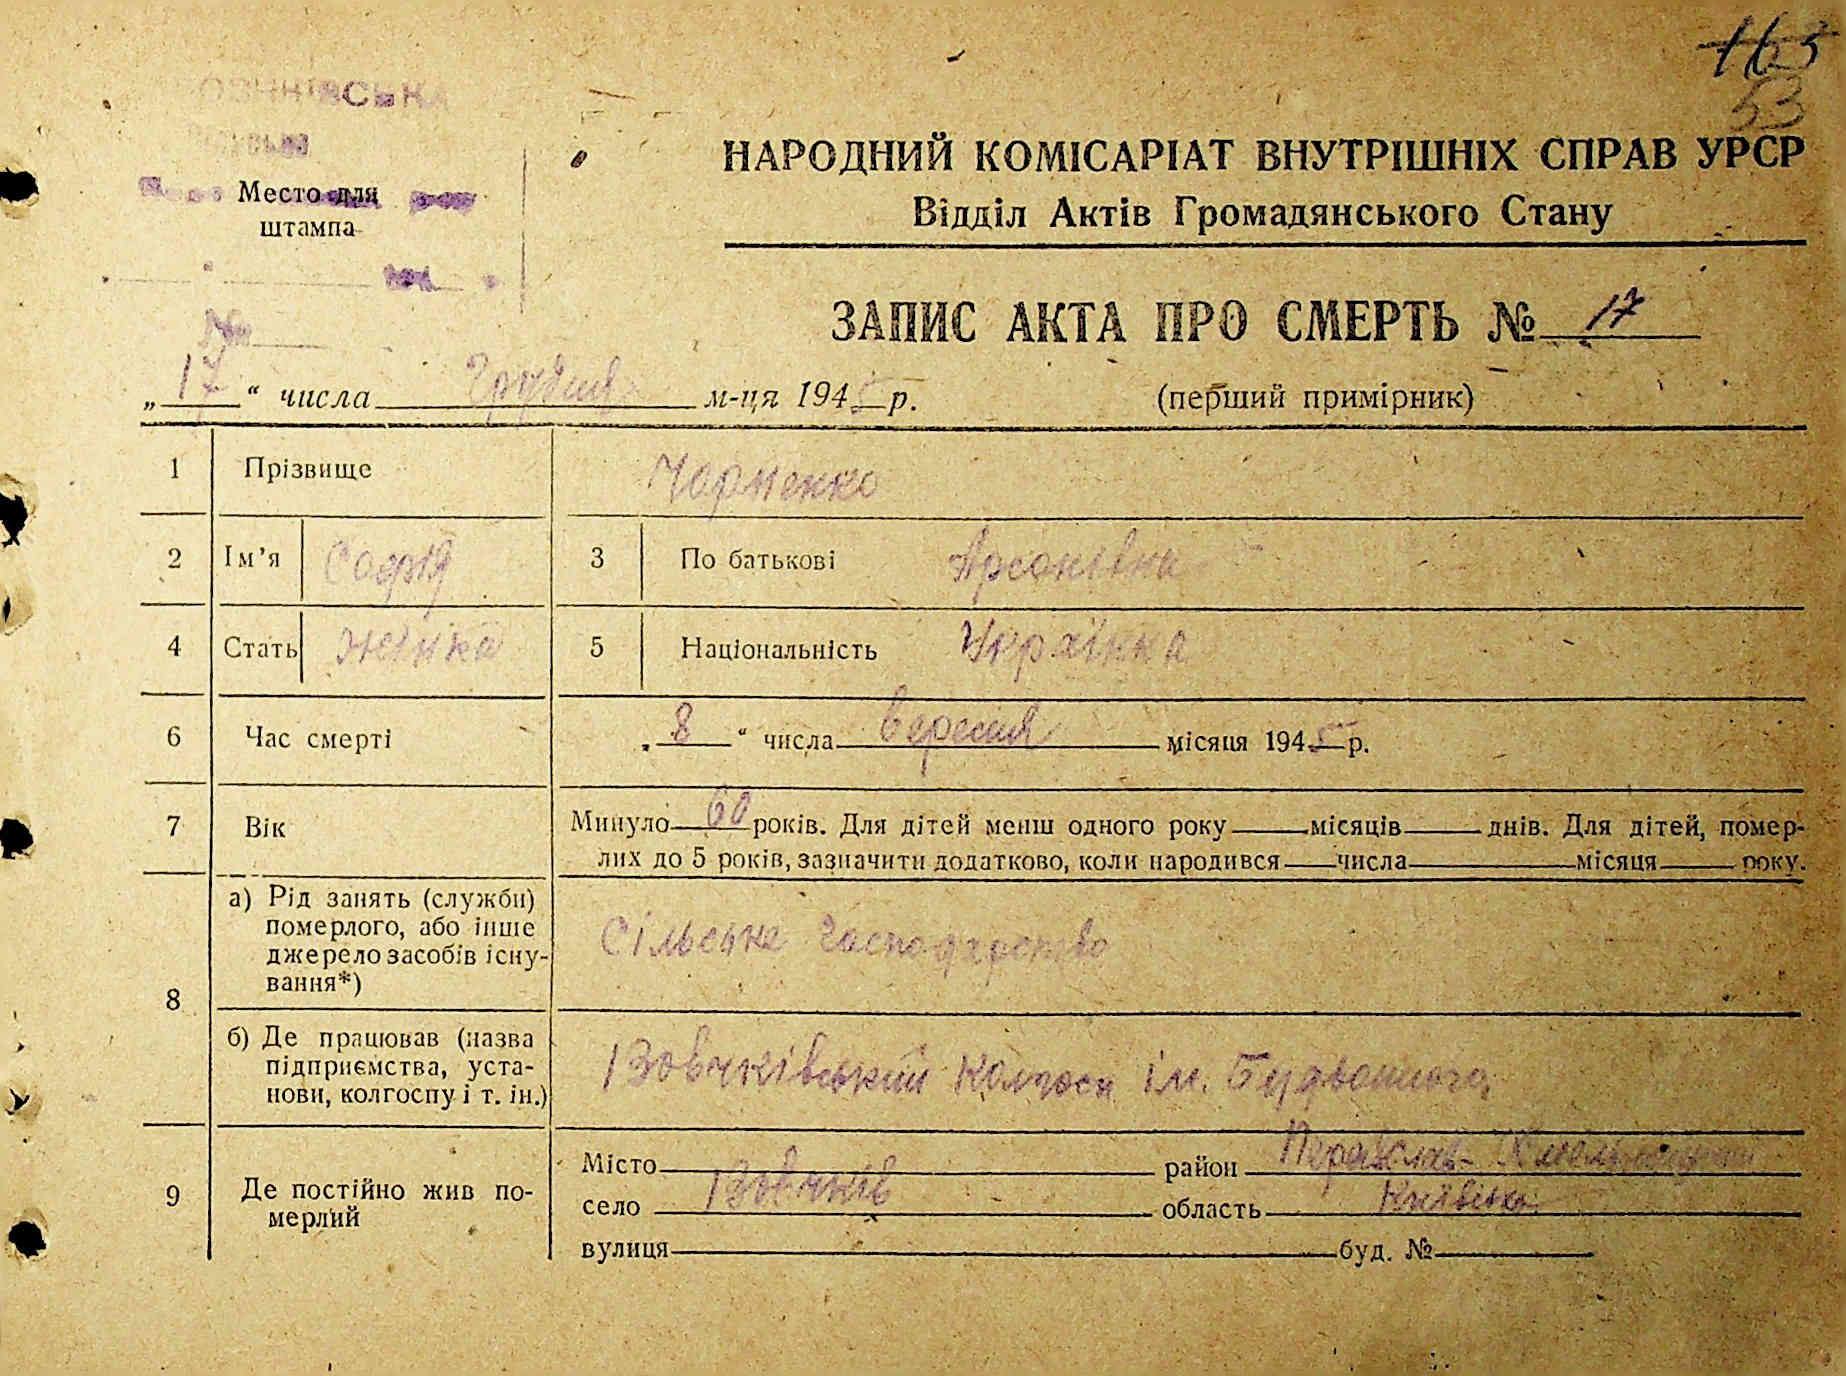 165
53
НАРОДНИЙ КОМІСАРІАТ ВНУТРІШНІХ СПРАВ УРСР
Відділ Актів Громадянського Стану
Место для
штампа
ЗАПИС АКТА ПРО СМЕРТЬ № 17
„ 17 “ числа Грудня м-ця 1945 р. (перший примірник)
1 Прізвище Чорненко
2 Ім’я Софія 3 По батькові
4 Стать Жінка 5 Національність Українка
6 Час смерті „ 8 “ числа Вересня місяця 1945 р.
7 Вік Минуло 60 років. Для дітей менш одного року місяців днів. Для дітей, помер-
лих до 5 років, зазначити додатково, коли народився числа місяця року.
8 а) Рід занять (служби)
померлого, або інше
джерело засобів існу-
вання*) Сільське господарство
б) Де працював (назва
підприємства, уста-
нови, колгоспу і т. ін.) колгосп ім. Будьонного
9 Де постійно жив по-
мерлий
Місто район Переяслав-Хмельницький
село область Київська
вулиця буд. №